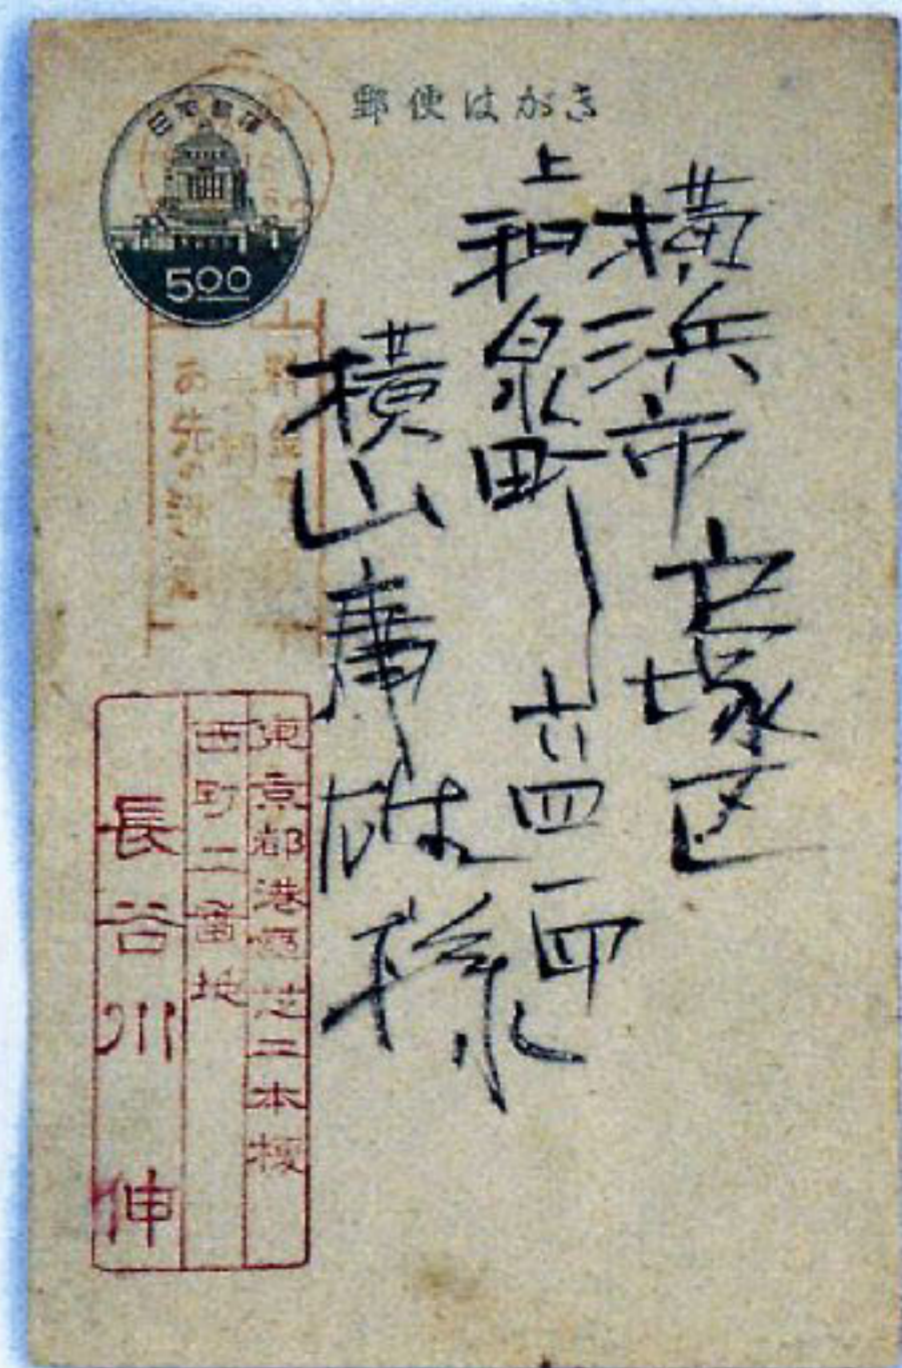 郵便はがき
日本郵便
500
横浜市戸塚区
上和泉町一六四一四
横山庸雄様
東京都港區芝二本榎
西町二番地
長谷川伸